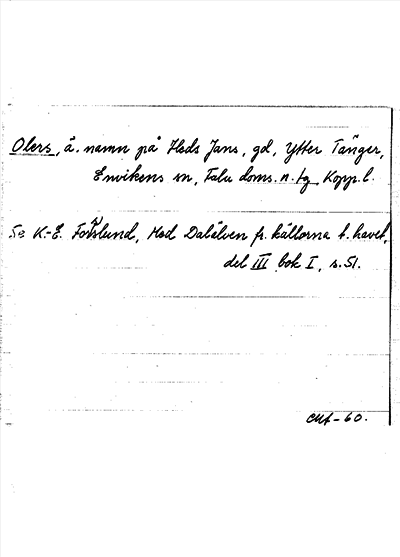 Olers, ä. namn på Heds Jans, gd, Ytter Tänger,
Envikens sn, Falu doms. n. tg, Kopp. l.
Se K.-E. Forsslund, Med Dalälven fr. källorna t. havet,
del III bok I, s. 51.
-60.